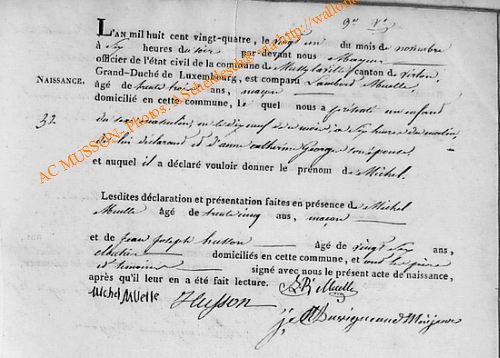 9e Vs
L'AN mil huit cent vingt-quatre, le vingt un du mois de novembre
à six heures du soir par-devant nous Mayeur
officier de l'état civil de la commune de Mussylaville canton de virton,
Grand-Duché de Luxembourg, est comparu Lambert Muelle
NAISSANCE.
âgé de trente trois ans, maçon
domicilié en cette commune, lequel nous a présenté un enfant
32
du sexe masculin, né le dix neuf de ce mois à six heures du matin
de lui déclarant et d'anne catherine George son épouse
et auquel il a déclaré vouloir donner le prénom de Michel.
Lesdites déclaration et présentation faites en présence de Michel
Muelle âgé de trente cinq ans, maçon
et de Jean Joseph husson âgé de vingt six ans,
cloutier domiciliés en cette commune, et ont les père
et témoins signé avec nous le présent acte de naissance,
après qu'il leur en a été fait lecture.
Michel Muelle
Husson
LB Muelle
AC MUSSON- Photos: A Schecles http://wallo